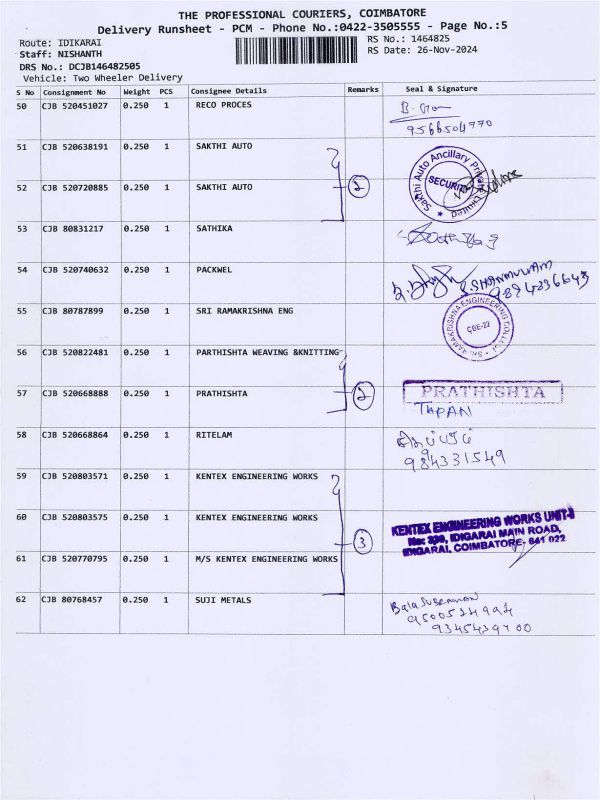 THE PROFESSIONAL COURIERS, COIMBATORE
Delivery Runsheet - PCM - Phone No.:0422-3505555 - Page No.:5
Route: IDIKARAI
RS No.: 1464825
Staff: NISHANTH
RS Date: 26-Nov-2024
DRS No.: DCJB146482505
Vehicle: Two Wheeler Delivery
S No Consignment No Weight PCS Consignee Details Remarks Seal & Signature
50 CJB 520451027 0.250 1 RECO PROCES
9566504770
51 CJB 520638191 0.250 1 SAKTHI AUTO
52 CJB 520720885 0.250 1 SAKTHI AUTO 2
Sakthi Auto Ancillary Private Limited
SECURITY
53 CJB 80831217 0.250 1 SATHIKA
54 CJB 520740632 0.250 1 PACKWEL
S.SHANMUGAM
9894336643
55 CJB 80787899 0.250 1 SRI RAMAKRISHNA ENG
SRI RAMAKRISHNA ENGINEERING COLLEGE
CBE-22
56 CJB 520822481 0.250 1 PARTHISHTA WEAVING &KNITTING
57 CJB 520668888 0.250 1 PRATHISHTA 2
PRATHISHTA
TAPAN
58 CJB 520668864 0.250 1 RITELAM
984331549
59 CJB 520803571 0.250 1 KENTEX ENGINEERING WORKS
60 CJB 520803575 0.250 1 KENTEX ENGINEERING WORKS 3
KENTEX ENGINEERING WORKS UNIT-II
No: 339, IDIGARAI MAIN ROAD,
IDIGARAI, COIMBATORE- 641 022
61 CJB 520770795 0.250 1 M/S KENTEX ENGINEERING WORKS
62 CJB 80768457 0.250 1 SUJI METALS
Balasubramani
9345439700